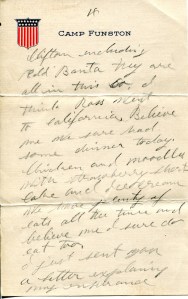 18
CAMP FUNSTON
Clifton including
Red Banta they are
all in this Co. I
think Ross went
to California. Believe
me we sure had
some dinner today.
Chicken and noodles
with strawberry short
cake and Ice cream
We have plenty of
eats all the time and
believe me I sure do
eat too.
I just sent you
a letter explaining
my insurance